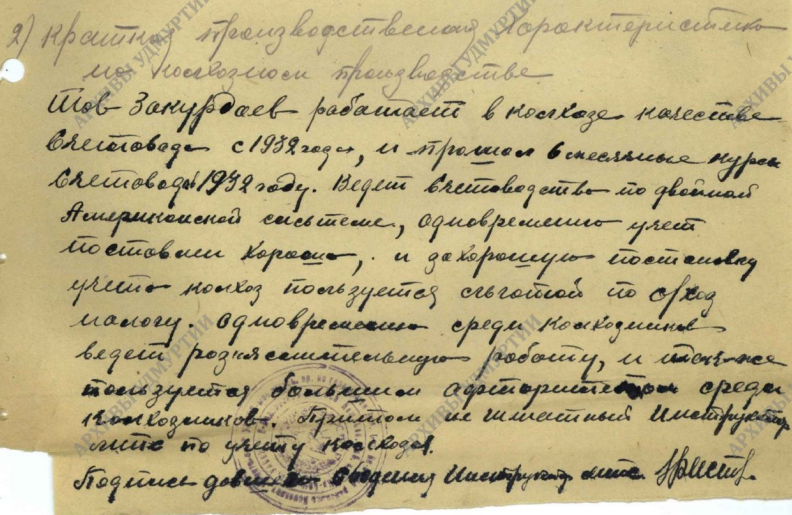 2) Краткая производственная характеристика
на колхозном производстве
Тов Закурдаев работает в колхозе качестве
Счетовода с 1932 года, и прошол 6 месячные курсы
Счетовод 1932 году. Ведет Счетоводство по двойной
Американской систтеме, одновременно учет
поставлен хорошо, и за хорошую постановку
учета колхоз пользуется льготой по с/хоз
налогу. Одновременно среди колхозников
ведет розяснительную работу, и так-же
пользуется большим афторитетом среди
колхозников. Притом не штатный Инструктор
мтс по учету колхозов.
Подпись давшего сведения Инструктор мтс
АРХИВЫ УДМУРТИИ